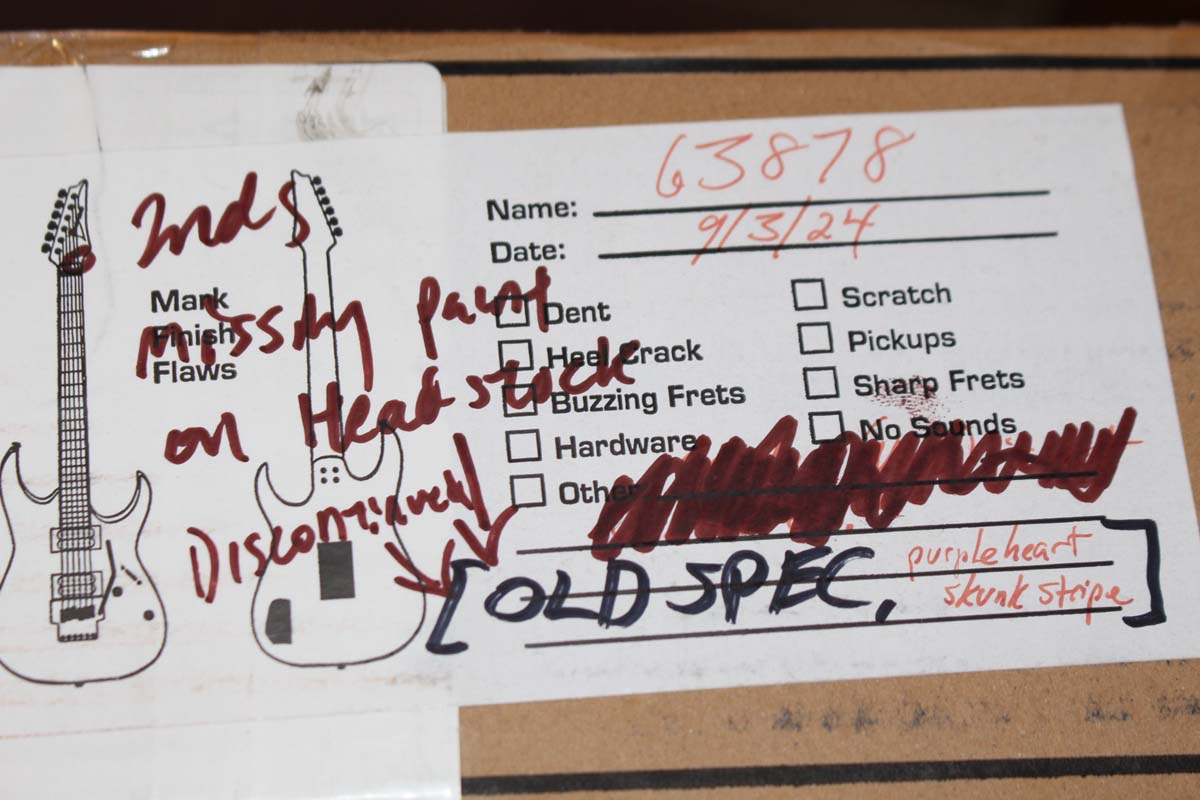 2nds
Mark
Finish
Flaws
missing paint
on Headstock
Discontinued
Name: 63878
Date: 9/3/24
Dent
Heel Crack
Buzzing Frets
Hardware
Other
Scratch
Pickups
Sharp Frets
No Sounds
[OLD SPEC, purpleheart
skunk stripe]